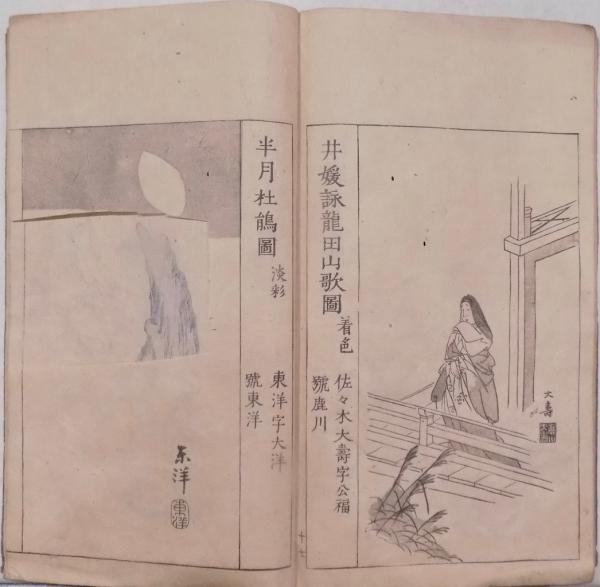 井媛詠龍田山歌圖 着色
佐々木大壽字公福
號鹿川
大壽
十七
半月杜鵑圖 淡彩
東洋字大洋
號東洋
东洋
東洋